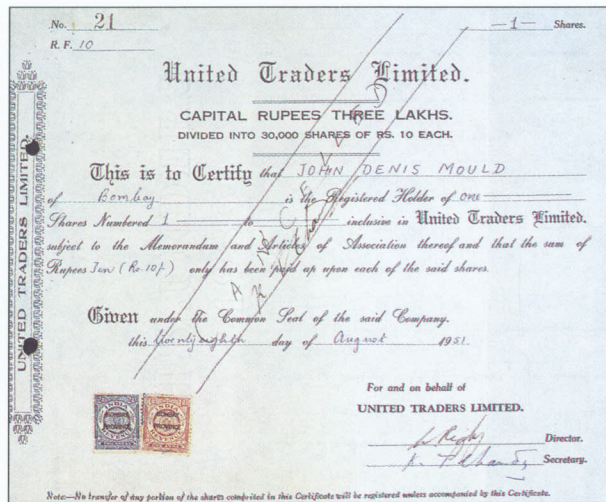 No. 21 —1— Shares.
R. F. 10
United Traders Limited.
CAPITAL RUPEES THREE LAKHS.
DIVIDED INTO 30,000 SHARES OF RS. 10 EACH.
This is to Certify that JOHN DENIS MOULD
of Bombay is the Registered Holder of one
Shares Numbered 1 to inclusive in United Traders Limited.
subject to the Memorandum and Articles of Association thereof and that the sum of
Rupees Ten (Re. 10/-) only has been paid up upon each of the said shares.
CANCELLED
Given under the Common Seal of the said Company.
this twentyeighth day of August 1951.
UNITED TRADERS LIMITED
INDIA INDIA
REVENUE REVENUE
For and on behalf of
UNITED TRADERS LIMITED.
Director.
Secretary.
Note:—No transfer of any portion of the shares comprised in this Certificate will be registered unless accompanied by this Certificate.